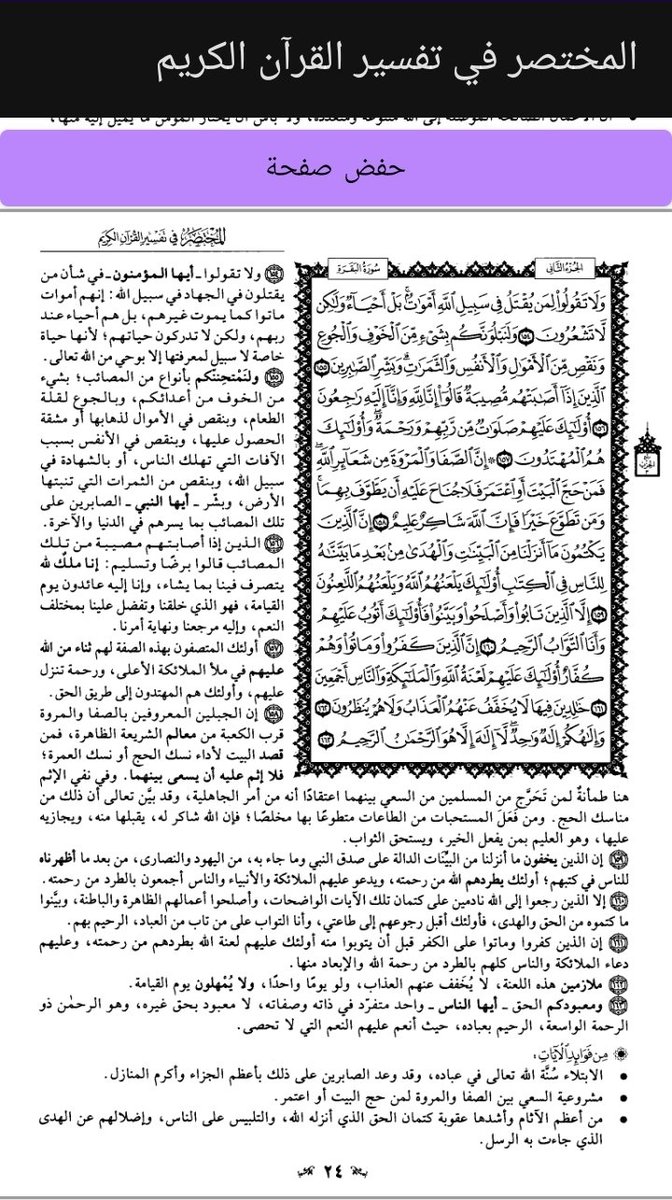 المختصر في تفسير القرآن الكريم
حفض صفحة
المختصر في تفسير القرآن الكريم
الجزء الثاني
سورة البقرة
وَلَا تَقُولُوا۟ لِمَن يُقْتَلُ فِى سَبِيلِ ٱللَّهِ أَمْوَٰتٌۢ ۚ بَلْ أَحْيَآءٌۭ وَلَٰكِن
لَّا تَشْعُرُونَ ١٥٤ وَلَنَبْلُوَنَّكُم بِشَىْءٍۢ مِّنَ ٱلْخَوْفِ وَٱلْجُوعِ
وَنَقْصٍۢ مِّنَ ٱلْأَمْوَٰلِ وَٱلْأَنفُسِ وَٱلثَّمَرَٰتِ ۗ وَبَشِّرِ ٱلصَّٰبِرِينَ ١٥٥
ٱلَّذِينَ إِذَآ أَصَٰبَتْهُم مُّصِيبَةٌۭ قَالُوٓا۟ إِنَّا لِلَّهِ وَإِنَّآ إِلَيْهِ رَٰجِعُونَ
١٥٦ أُو۟لَٰٓئِكَ عَلَيْهِمْ صَلَوَٰتٌۭ مِّن رَّبِّهِمْ وَرَحْمَةٌۭ ۖ وَأُو۟لَٰٓئِكَ
هُمُ ٱلْمُهْتَدُونَ ١٥٧ ۞ إِنَّ ٱلصَّفَا وَٱلْمَرْوَةَ مِن شَعَآئِرِ ٱللَّهِ ۖ
فَمَنْ حَجَّ ٱلْبَيْتَ أَوِ ٱعْتَمَرَ فَلَا جُنَاحَ عَلَيْهِ أَن يَطَّوَّفَ بِهِمَا ۚ
وَمَن تَطَوَّعَ خَيْرًۭا فَإِنَّ ٱللَّهَ شَاكِرٌ عَلِيمٌ ١٥٨ إِنَّ ٱلَّذِينَ
يَكْتُمُونَ مَآ أَنزَلْنَا مِنَ ٱلْبَيِّنَٰتِ وَٱلْهُدَىٰ مِنۢ بَعْدِ مَا بَيَّنَّٰهُ
لِلنَّاسِ فِى ٱلْكِتَٰبِ ۙ أُو۟لَٰٓئِكَ يَلْعَنُهُمُ ٱللَّهُ وَيَلْعَنُهُمُ ٱللَّٰعِنُونَ
١٥٩ إِلَّا ٱلَّذِينَ تَابُوا۟ وَأَصْلَحُوا۟ وَبَيَّنُوا۟ فَأُو۟لَٰٓئِكَ أَتُوبُ عَلَيْهِمْ ۚ
وَأَنَا ٱلتَّوَّابُ ٱلرَّحِيمُ ١٦٠ إِنَّ ٱلَّذِينَ كَفَرُوا۟ وَمَاتُوا۟ وَهُمْ
كُفَّارٌ أُو۟لَٰٓئِكَ عَلَيْهِمْ لَعْنَةُ ٱللَّهِ وَٱلْمَلَٰٓئِكَةِ وَٱلنَّاسِ أَجْمَعِينَ
١٦١ خَٰلِدِينَ فِيهَا ۖ لَا يُخَفَّفُ عَنْهُمُ ٱلْعَذَابُ وَلَا هُمْ يُنظَرُونَ ١٦٢
وَإِلَٰهُكُمْ إِلَٰهٌۭ وَٰحِدٌۭ ۖ لَّآ إِلَٰهَ إِلَّا هُوَ ٱلرَّحْمَٰنُ ٱلرَّحِيمُ ١٦٣
١٥٤ ولا تقولوا ـ أيها المؤمنون ـ في شأن من
يقتلون في الجهاد في سبيل الله: إنهم أموات
ماتوا كما يموت غيرهم، بل هم أحياء عند
ربهم، ولكن لا تدركون حياتهم؛ لأنها حياة
خاصة لا سبيل لمعرفتها إلا بوحي من الله تعالى.
١٥٥ ولنَمْتحِننَّكم بأنواع من المصائب؛ بشيء
من الخوف من أعدائكم، وبالجوع لقلة
الطعام، وبنقص في الأموال لذهابها أو مشقة
الحصول عليها، وبنقص في الأنفس بسبب
الآفات التي تهلك الناس، أو بالشهادة في
سبيل الله، وبنقص من الثمرات التي تنبتها
الأرض، وبشّر ـ أيها النبي ـ الصابرين على
تلك المصائب بما يسرهم في الدنيا والآخرة.
١٥٦ الذين إذا أصابتهم مصيبة من تلك
المصائب قالوا برضًا وتسليم: إنا ملكٌ لله
يتصرف فينا بما يشاء، وإنا إليه عائدون يوم
القيامة، فهو الذي خلقنا وتفضل علينا بمختلف
النعم، وإليه مرجعنا ونهاية أمرنا.
١٥٧ أولئك المتصفون بهذه الصفة لهم ثناء من الله
عليهم في ملأ الملائكة الأعلى، ورحمة تنزل
عليهم، وأولئك هم المهتدون إلى طريق الحق.
١٥٨ إن الجبلين المعروفين بالصفا والمروة
قرب الكعبة من معالم الشريعة الظاهرة، فمن
قصد البيت لأداء نسك الحج أو نسك العمرة؛
فلا إثم عليه أن يسعى بينهما. وفي نفي الإثم
هنا طمأنةٌ لمن تَحَرَّج من المسلمين من السعي بينهما اعتقادًا أنه من أمر الجاهلية، وقد بيَّن تعالى أن ذلك من
مناسك الحج. ومن فَعَلَ المستحبات من الطاعات متطوعًا بها مخلصًا؛ فإن الله شاكر له، يقبلها منه، ويجازيه
عليها، وهو العليم بمن يفعل الخير، ويستحق الثواب.
١٥٩ إن الذين يخفون ما أنزلنا من البيّنات الدالة على صدق النبي وما جاء به، من اليهود والنصارى، من بعد ما أظهرناه
للناس في كتبهم؛ أولئك يطردهم الله من رحمته، ويدعو عليهم الملائكة والأنبياء والناس أجمعون بالطرد من رحمته.
١٦٠ إلا الذين رجعوا إلى الله نادمين على كتمان تلك الآيات الواضحات، وأصلحوا أعمالهم الظاهرة والباطنة، وبيَّنوا
ما كتموه من الحق والهدى، فأولئك أقبل رجوعهم إلى طاعتي، وأنا التواب على من تاب من العباد، الرحيم بهم.
١٦١ إن الذين كفروا وماتوا على الكفر قبل أن يتوبوا منه أولئك عليهم لعنة الله بطردهم من رحمته، وعليهم
دعاء الملائكة والناس كلهم بالطرد من رحمة الله والإبعاد منها.
١٦٢ ملازمين هذه اللعنة، لا يُخَفف عنهم العذاب، ولو يومًا واحدًا، ولا يُمْهلون يوم القيامة.
١٦٣ ومعبودكم الحق ـ أيها الناس ـ واحد متفرّد في ذاته وصفاته، لا معبود بحق غيره، وهو الرحمٰن ذو
الرحمة الواسعة، الرحيم بعباده، حيث أنعم عليهم النعم التي لا تحصى.
من فوائد الآيات:
• الابتلاء سُنَّة الله تعالى في عباده، وقد وعد الصابرين على ذلك بأعظم الجزاء وأكرم المنازل.
• مشروعية السعي بين الصفا والمروة لمن حج البيت أو اعتمر.
• من أعظم الآثام وأشدها عقوبة كتمان الحق الذي أنزله الله، والتلبيس على الناس، وإضلالهم عن الهدى
الذي جاءت به الرسل.
٢٤